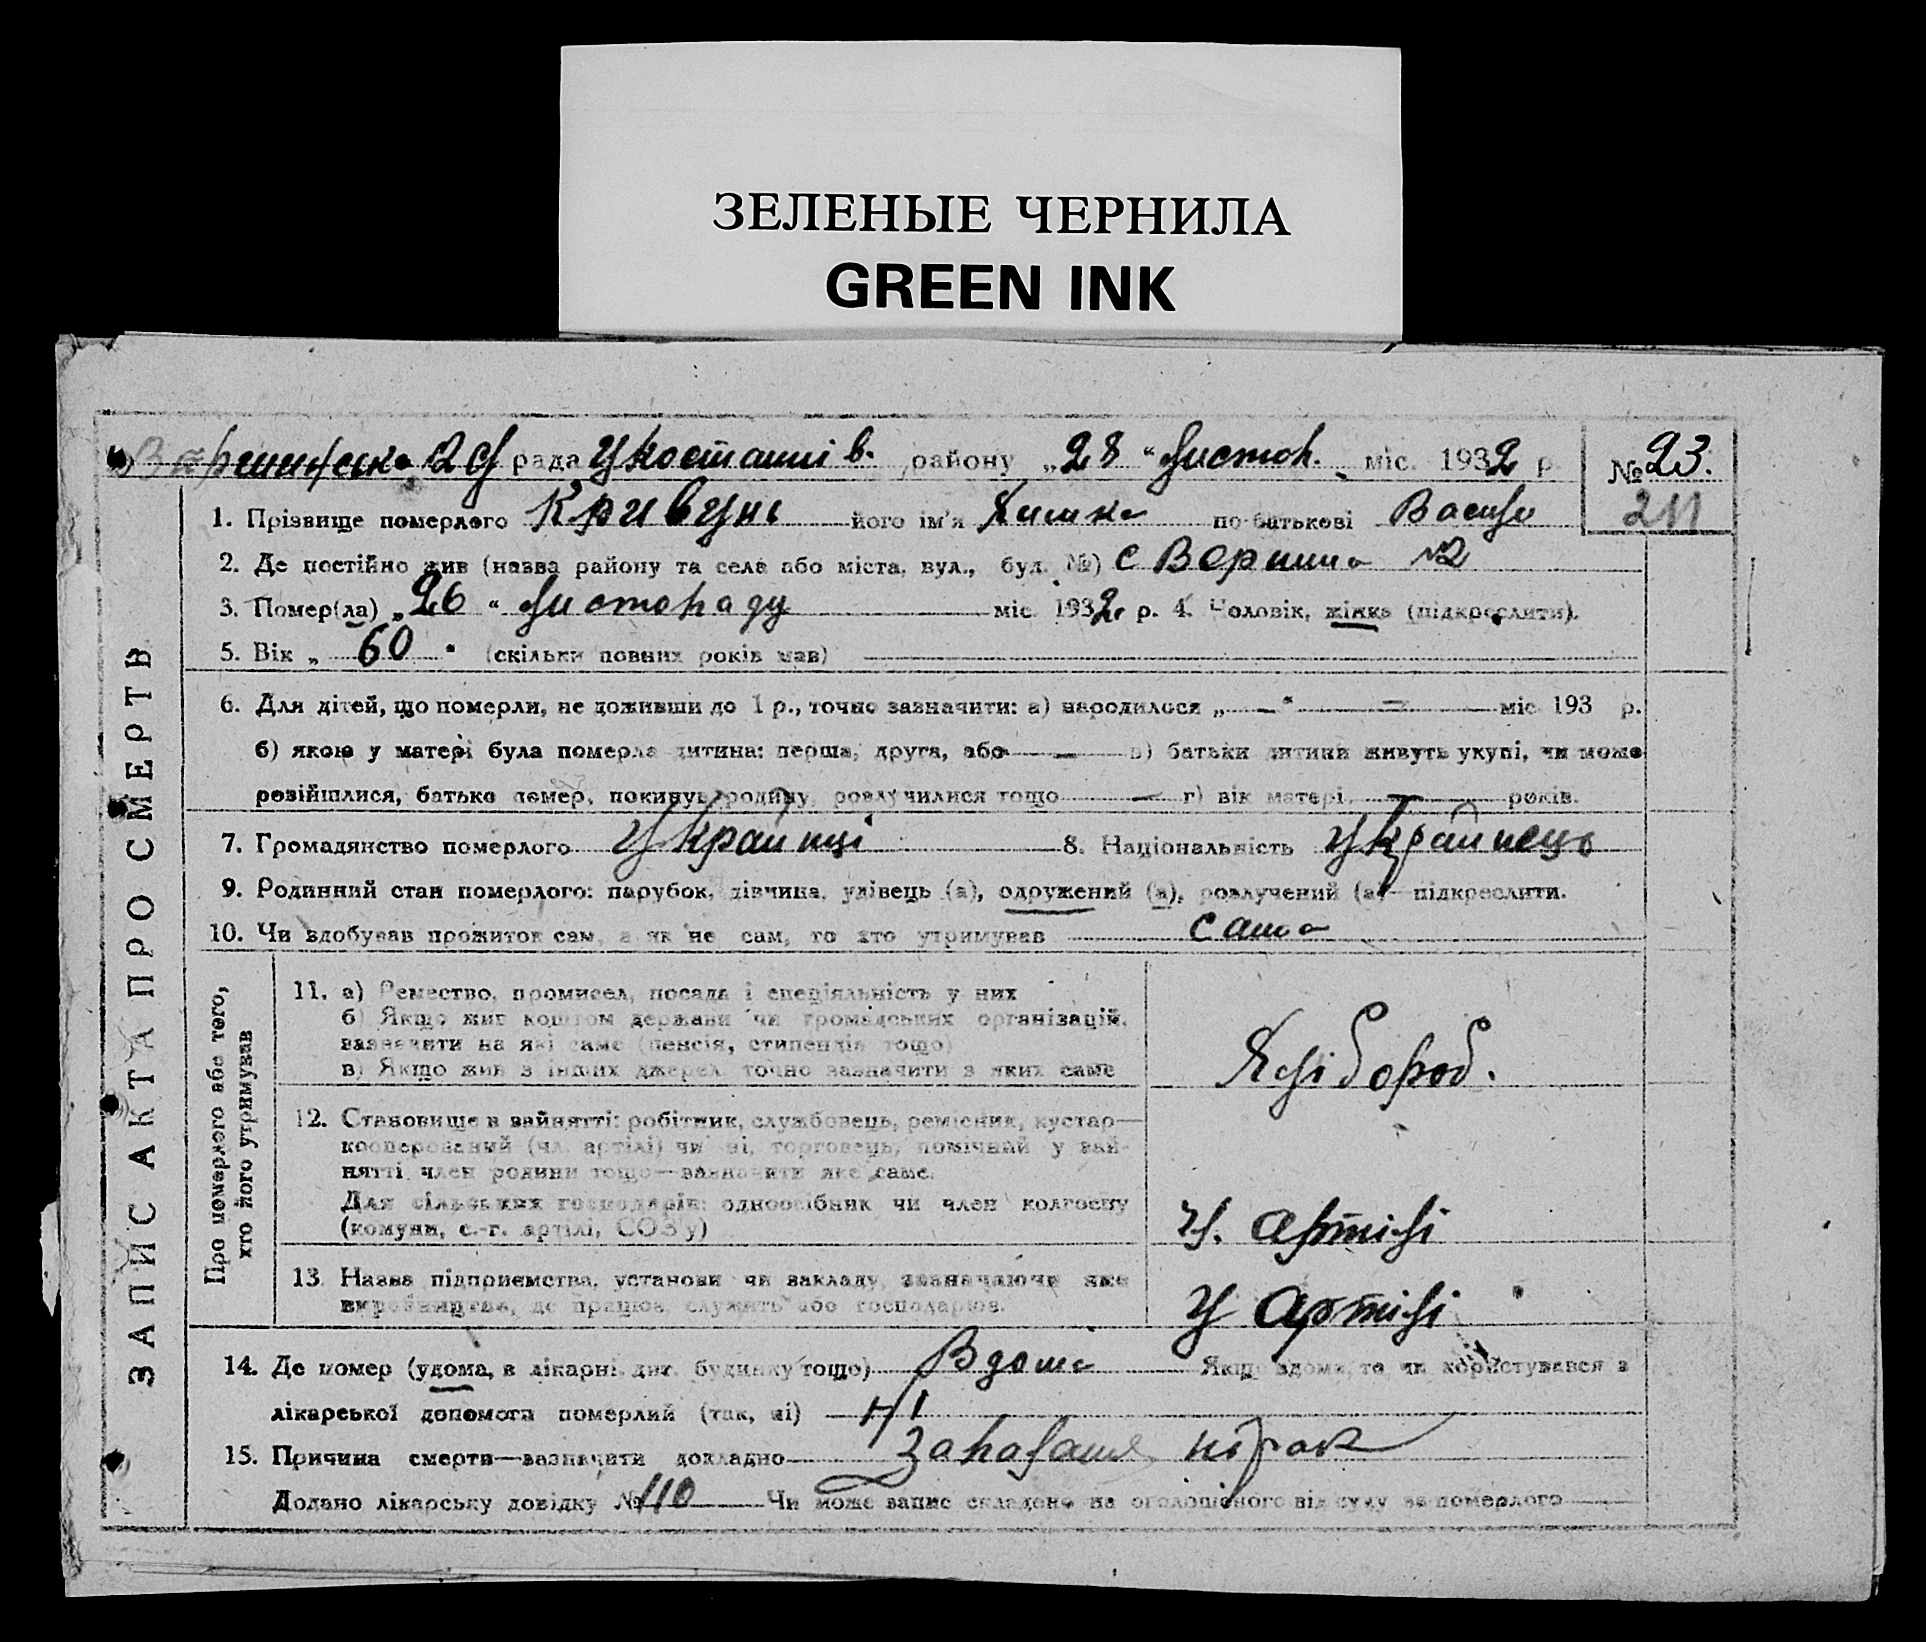 ЗЕЛЕНЫЕ ЧЕРНИЛА
GREEN INK
рада району „28 “ Листоп. міс. 1932 р.
№ 23.
211
1. Прізвище померлого Кривунь його ім'я по-батькові
2. Де постійно жив (назва району та села або міста, вул., буд. №) с Вершина №2
3. Помер(ла) „26 “ Листопаду міс. 1932 р. 4. Чоловік, жінка (підкреслити).
5. Вік „ 60 “ (скільки повних років мав)
6. Для дітей, що померли, не доживши до 1 р., точно зазначити: а) народилося „ — “ — міс 193 р.
б) якою у матері була померла дитина: перша, друга, або — в) батьки дитини живуть укупі, чи може
розійшлися, батько помер, покинув родину, розлучилися тощо — г) вік матері — років.
7. Громадянство померлого 8. Національність Українець
9. Родинний стан померлого: парубок, дівчина, удівець (а), одружений (а), розлучений (а)—підкреслити.
10. Чи здобував прожиток сам, а як не сам, то хто утримував сама
ЗАПИС АКТА ПРО СМЕРТЬ
Про померлого або того, хто його утримував
11. а) Ремество, промисел, посада і спеціяльність у них
б) Якщо жив коштом держави чи громадських організацій,
зазначити на які саме (пенсія, стипендія тощо)
в) Якщо жив з інших джерел точно зазначити з яких саме
Хлібороб.
12. Становище в занятті: робітник, службовець, ремісник, кустар—
кооперований (чл. артілі) чи ні, торговець, помічний у зан-
нятті член родини тощо—зазначити яке саме.
Для сільських господарів: одноосібник чи член колгоспу
(комуни, с.-г. артілі, СОЗ'у)
У. артілі
13. Назва підприємства, установи чи закладу, зазначаючи яке
виробництво, де працює, служить або господарює.
У Артілі
14. Де помер (удома, в лікарні, дит. будинку тощо) Вдома Якщо вдома, то чи користувався з
лікарської допомоги померлий (так, ні) Ні
15. Причина смерти—зазначити докладно
Додано лікарську довідку № 110 Чи може запис складено на оголошеного від суду за померлого